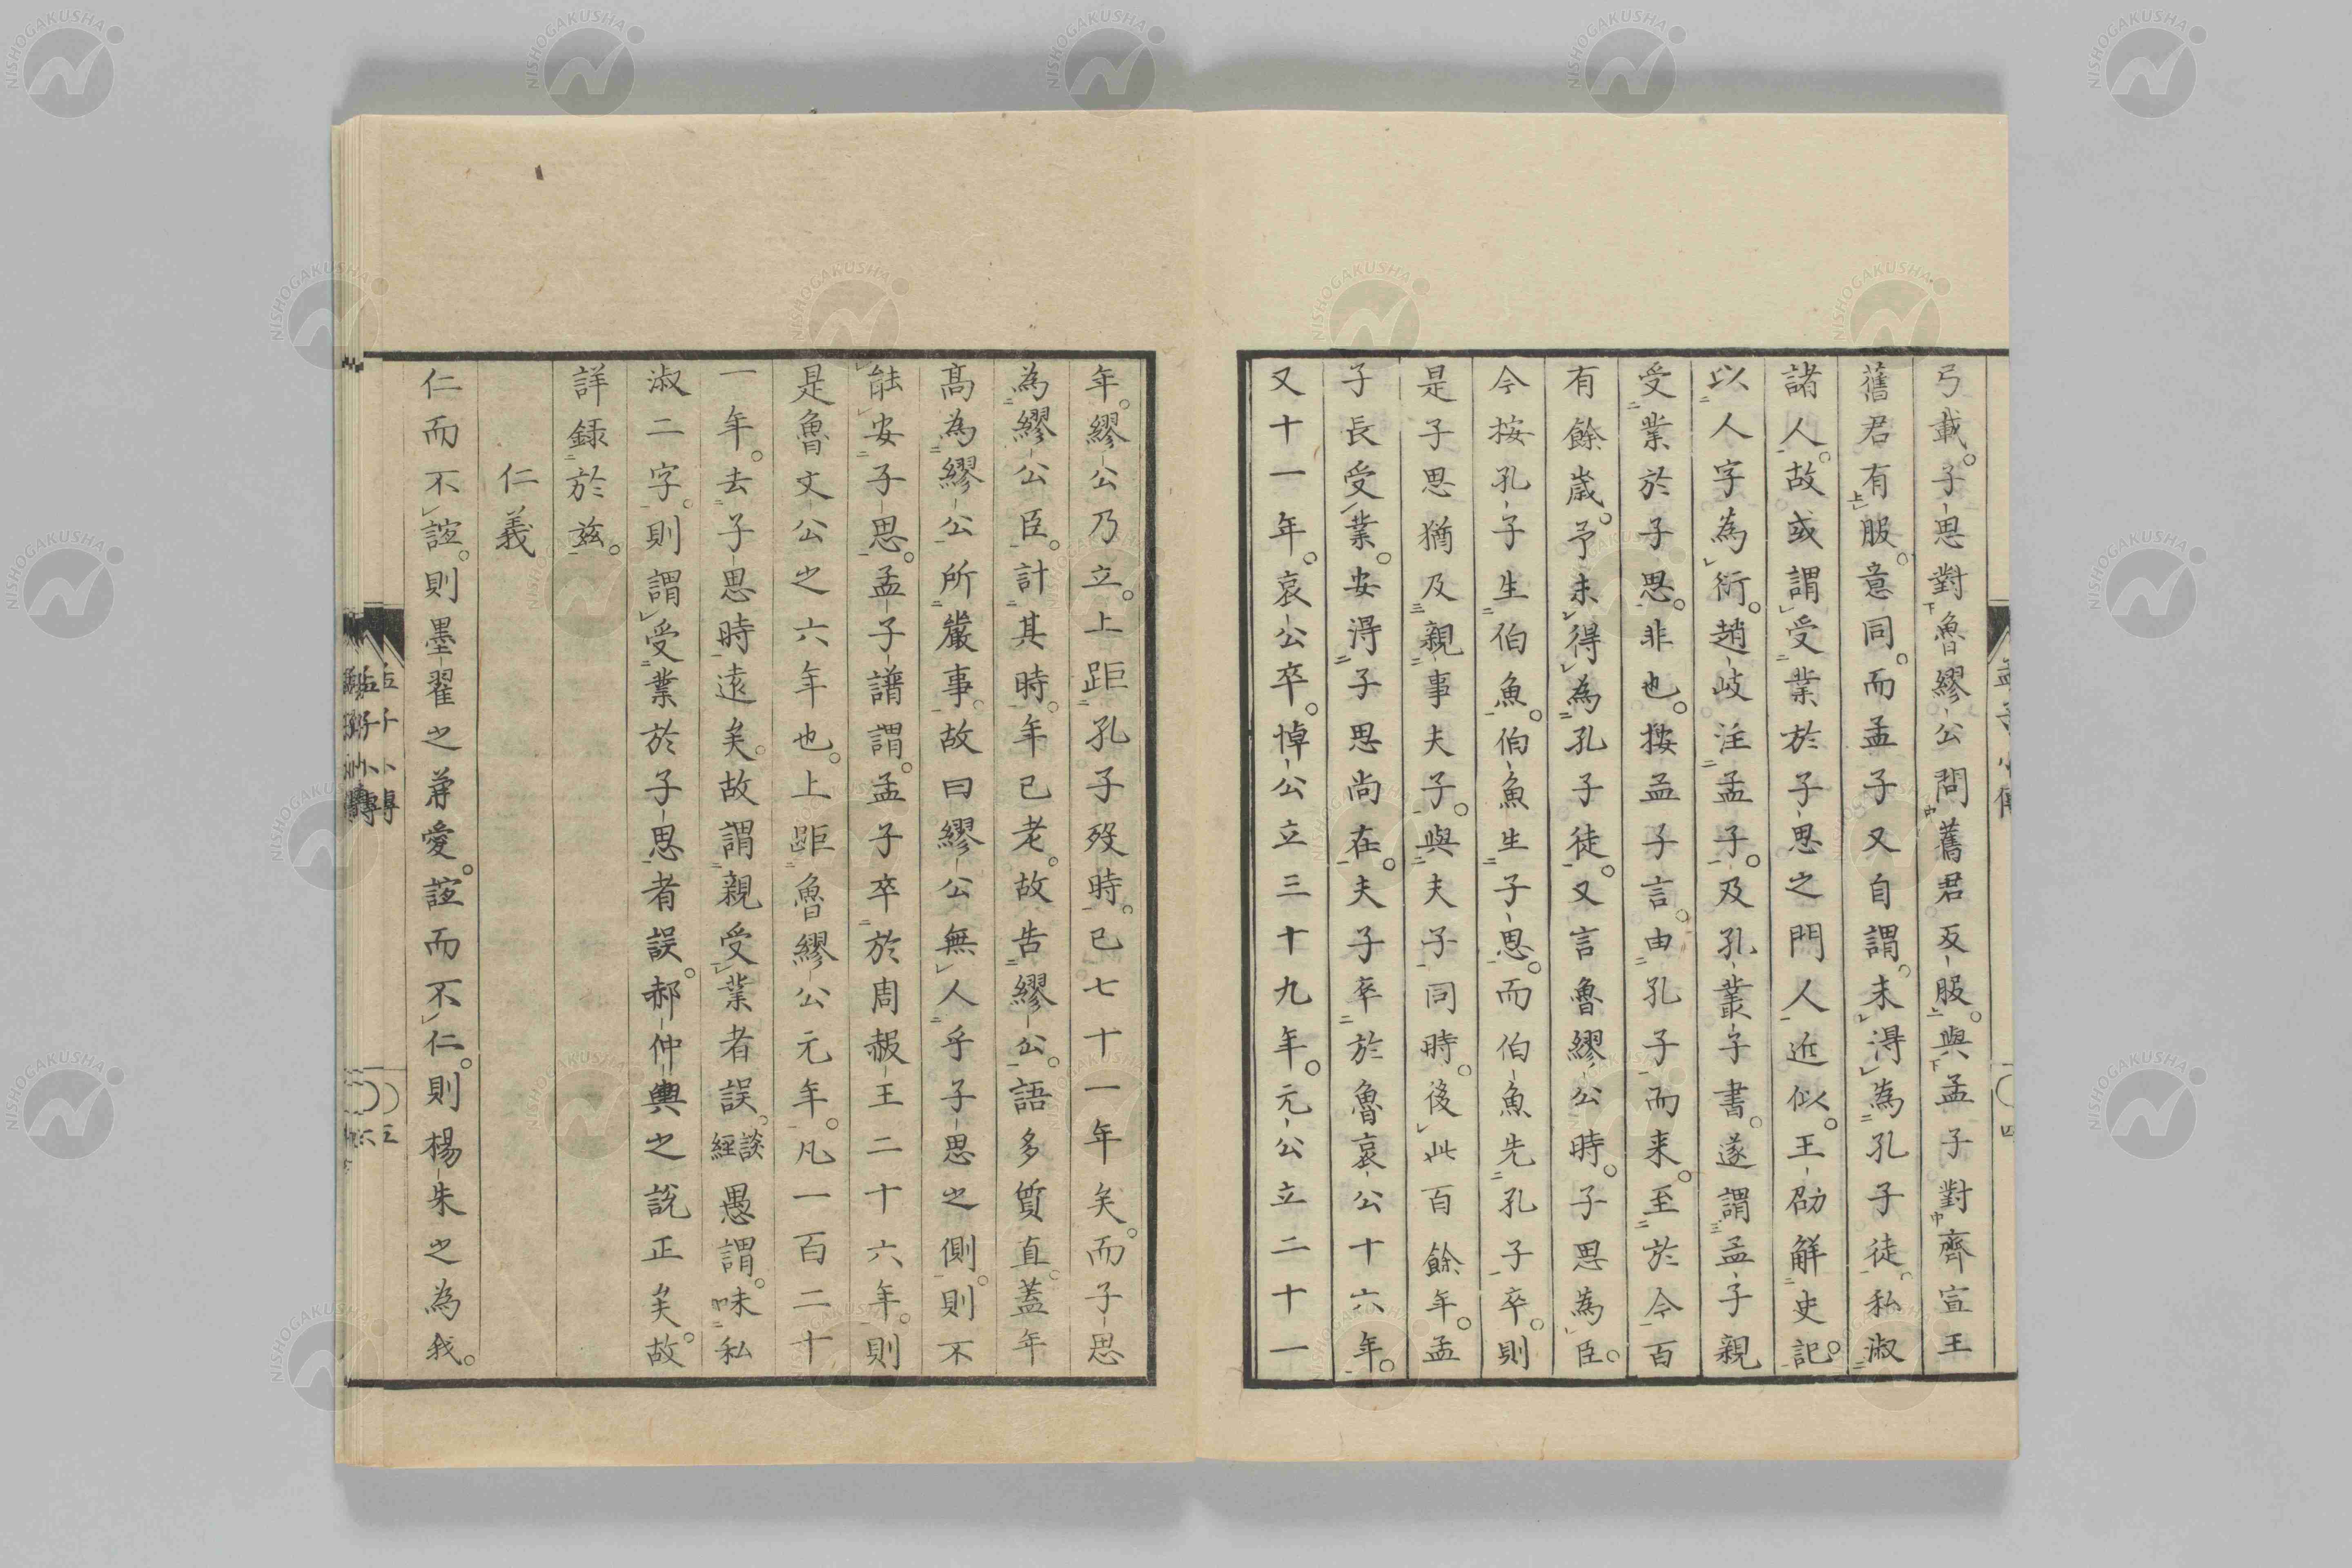 弓載。子思對魯繆公問舊君反服。與孟子對齊宣王
舊君有服。意同。而孟子又自謂。未得為孔子徒。私淑
諸人。故或謂受業於子思之門人近似。王劭解史記。
以人字為衍。趙岐注孟子。及孔叢子書。遂謂孟子親
受業於子思。非也。按孟子言。由孔子而来。至於今百
有餘歳。予未得為孔子徒。又言魯繆公時。子思為臣。
今按孔子生伯魚。伯魚生子思。而伯魚先孔子卒。則
是子思猶及親事夫子。與夫子同時。後此百餘年。孟
子長受業。安得子思尚在。夫子卒於魯哀公十六年。
又十一年。哀公卒。悼公立三十九年。元公立二十一
年。繆公乃立。上距孔子歿時。已七十一年矣。而子思
為繆公臣。計其時。年已老。故告繆公。語多質直。蓋年
髙為繆公所嚴事。故曰繆公無人乎子思之側。則不
能安子思。孟子譜謂。孟子卒於周赧王二十六年。則
是魯文公之六年也。上距魯繆公元年。凡一百二十
一年。去子思時遠矣。故謂親受業者誤。談經 愚謂。味私
淑二字。則謂受業於子思者誤。郝仲輿之説正矣。故
詳録於兹。
仁義
仁而不誼。則墨翟之兼愛。誼而不仁。則楊朱之為我。
NISHOGAKUSHA